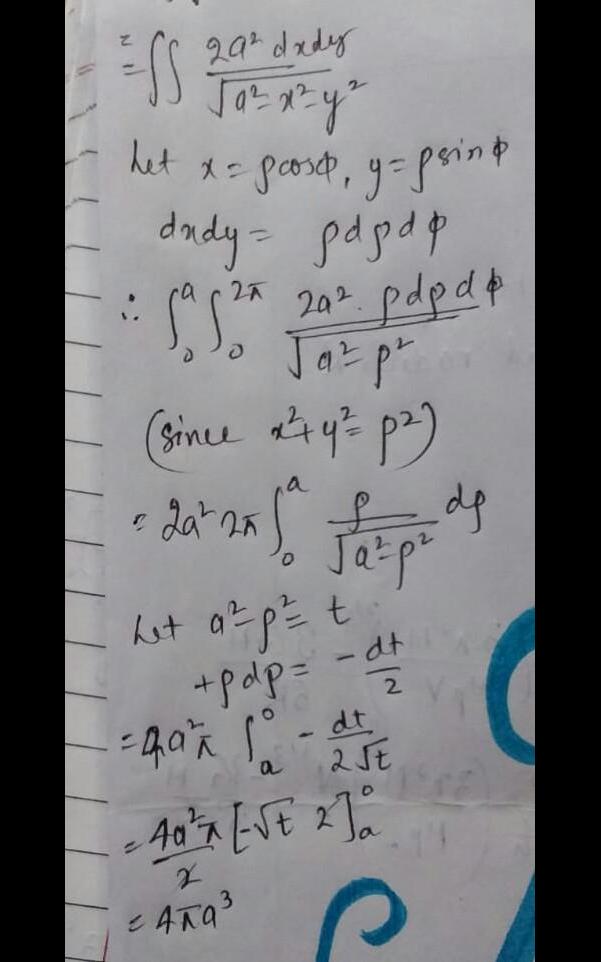 = ∫∫ 2a² dxdy / √a²-x²-y²
Let x = ρcosΦ, y = ρsinΦ
dxdy = ρdρdΦ
∴ ∫₀ᵃ ∫₀²ᵖⁱ 2a². ρdρdΦ / √a²-ρ²
(since x²+y² = ρ²)
= 2a² 2π ∫₀ᵃ ρ / √a²-ρ² dρ
Let a²-ρ² = t
+ρdρ = -dt/2
= 4a²π ∫ₐ⁰ - dt / 2√t
= 4a²π / 2 [-√t 2]ₐ⁰
= 4πa³